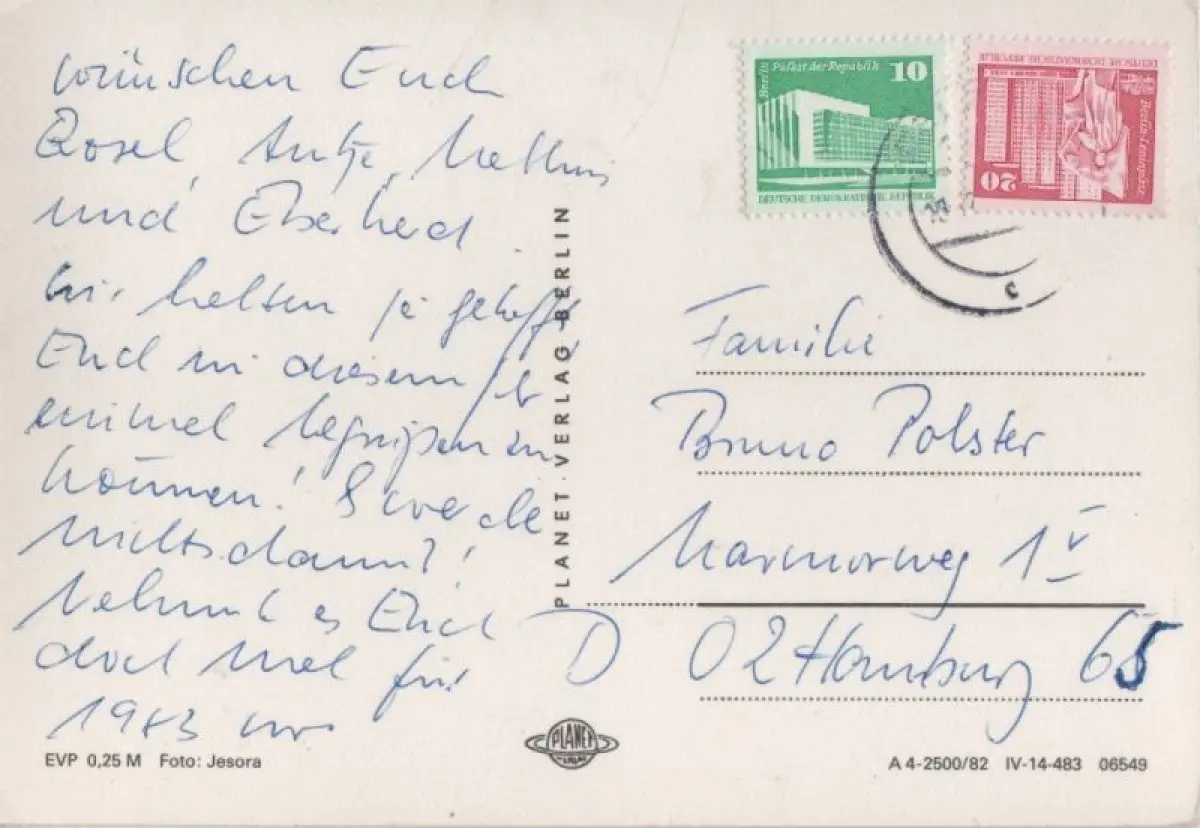 wünschen Euch
Rosel, Antje, Mathias
und Eberhard
Wir hatten ja gehofft
Euch in diesem Jahr
einmal begrüßen zu
können! Es wurde
nichts daraus!
Nehmt es Euch
doch mal für
1983 vor
EVP 0,25 M Foto: Jesora
PLANET-VERLAG BERLIN
PLANET
Berlin Palast der Republik 10
DEUTSCHE DEMOKRATISCHE REPUBLIK
Berlin-Leninplatz
20
DEUTSCHE DEMOKRATISCHE REPUBLIK
c
Familie
Bruno Polster
Marmorweg 1 V
D 02 Hamburg 65
A 4-2500/82 IV-14-483 06549